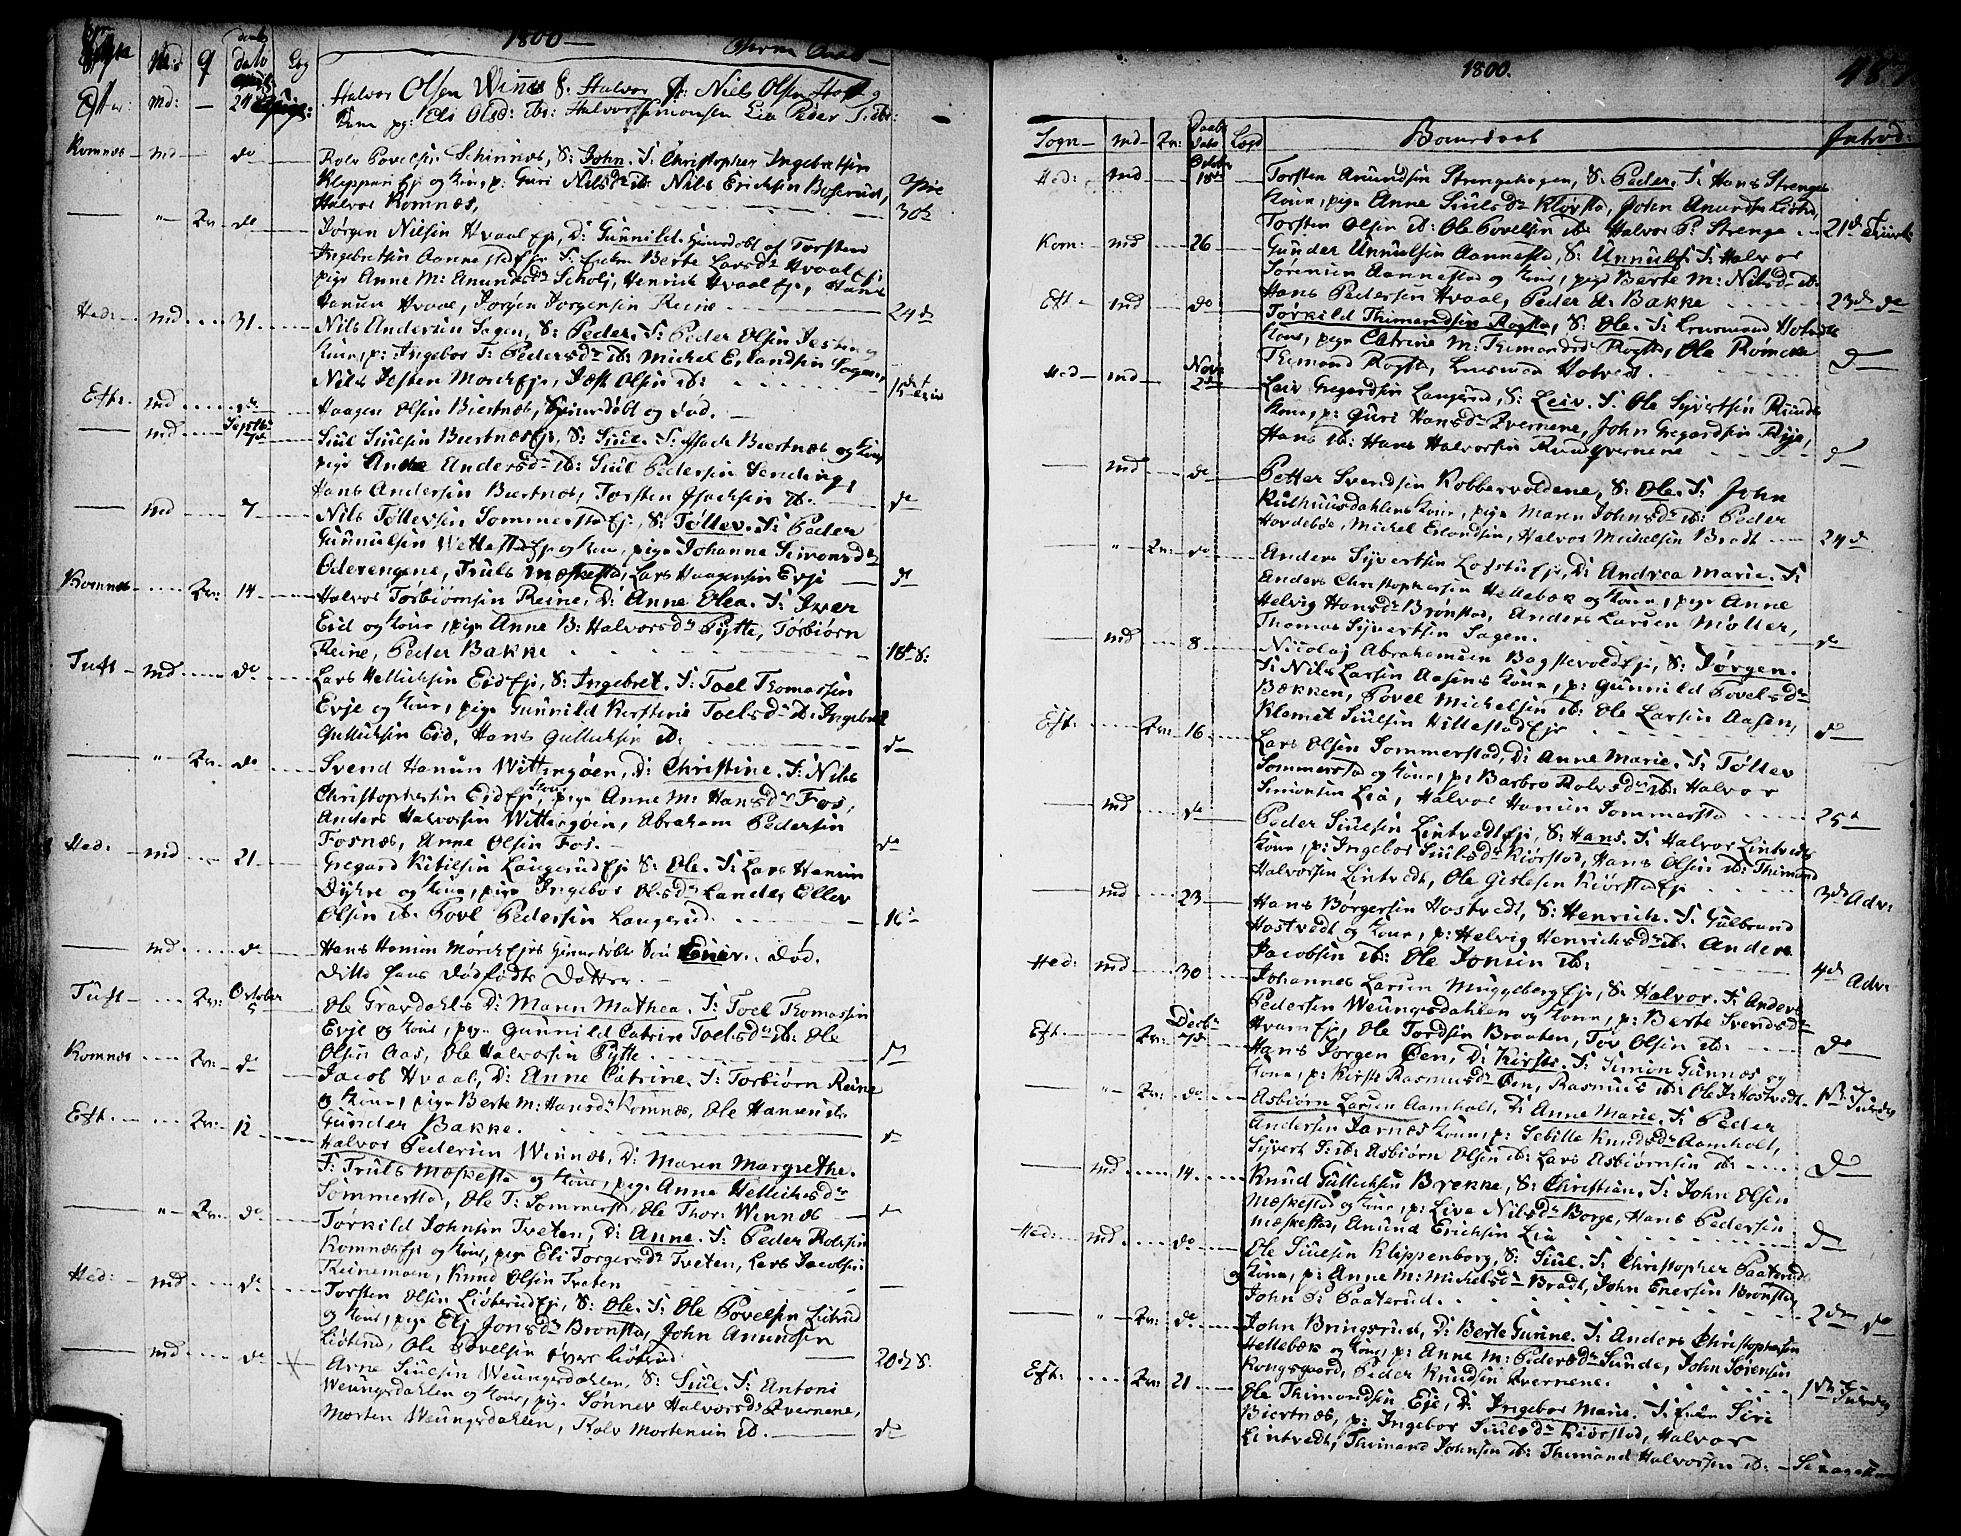 1800 —
Sogn Md: Q dato Log
Efter: Md: — 24 Halvor Olsen Winnes S: Halvor F: Niels Olsen
pg: Eli Olsd: ib: Halvor Simonsen Lia Peder S. ib:
Komnæs md de Rolv Povelsin Schinnæs, S: John. F: Christopher Ingebretsin
Klippen Ej og Kone, p: Guri Nilsdr ib: Nils Erichsin Boserud,
Halvor Komnæs, 30te
— " Qv: de Jørgen Nilsin Hvaal Ej, D: Gunnild. hiemdøbt af Torsten
Ingebretsin Aannestad Ej F: Berte Larsdr Hvaal Ej
pige Anne M: Anundsdr Scholj, Henrich Hvaal Ej, Hans
Hansen Hvaal, Jørgen Jorgensin Reine — 24de
Hed: md 31 Nils Andersin Sagen, S: Peder. F: Peder Olsin Jesten og
Kone, p: Ingebor F: Pedersdr ib: Michel Erlandsin Sagen,
Nils Jesten Morch Ej, Olsin ib:
Eft: md de Haagen Olsin Biertnæs, hiemdøbt og død.
— md Septbr 7de Siul Siulsin Biertnæs Ej, S: Siul. F: Isack Biertnæs og Kone
pige Anne Andersdr ib: Siul Pedersin Sending,
Hans Andersin Biertnæs, Torsten Isachsin ib. — de
— md 7 Nils Tøllersin Sommerstad Ej, S: Tøllev. F: Peder
Gunnulsin Wettestad Ej og Kone, pige Johanne Simonsdr
Oderengene, Truls Mæskestad, Lars Haagensin Evje — de
Komnæs Qv: 14 Halvor Torbiornsin Reine, D: Anne Olea. F: Iver
Eid og Kone, pige Anne B: Halvorsdr Pytte, Torbiørn
Reine, Peder Bakke — 18de S:
Tuft md de Lars Hellichsin Eid Ej, S: Ingebret. F: Toel Thomassin
Evje og Kone, pige Gunnild Kirstine Toelsdr ib: Ingebret
Gulliksin Eid, Hans Gulliksin ib: — de
— " Qv: de Svend Hansin Wittingøen, D: Christine. F: Nils
Christophersin Eid Ej, Kone pige Anne M: Hansdr Fos,
Anders Halvorsin Wittingøin, Abraham Pedersin
Fosnæs, Anne Olsin Fos. — de
Hed: md 21 Gregard Kitilsin Laugerud Ej S: Ole. F: Lars Hansin
Dykre og Kone, pige Ingebor Olsdr Landes, Ellev
Olsin ib. Povl Pedersin Laugerud. — 16
— md de Hans Hansin Morch Ejes hiemdøbte Søn Einer. død.
Ditto hans dødfødte Datter.
Tuft Qv: October 5 Ole Gravdahls D: Maren Mathea. F: Toel Thomassin
Evje og Kone, pige Gunnild Catrine Toelsdr ib: Ole
Olsin Aas, Ole Halvorsin Pytte. — de
Komnæs Qv: de Jacob Hvaal, D: Anne Catrine. F: Torbiørn Reine
og Kone, pige Berte M: Hansdr Komnæs, Ole Hansen ib
Gunder Bakke. — de
Eft: Qv: 12 Halvor Pedersin Winnæs, D: Maren Margrethe.
F: Truls Mæskestad og Kone, pige Anne Hellichsdr
Sommerstad, Ole T: Sommerstad, Ole Thor: Winnæs — de
— " Qv: de Torkild Johnsin Tveten, D: Anne. F: Peder Rolvsin
Komnæs Ej og Kone, pige Eli Torgersdr Tveten, Lars Jacobsin
Reinemoen, Knud Olsin Tveten —
Hed: md de Torsten Olsin Liøterud Ej, S: Ole. F: Ole Povelsin Liøterud
og Kone, pige Elj Jonsdr Brønstad, John Anundsin
Liøterud, Ole Povelsin øvre Liøterud — 20de S.
— md de Arne Siulsin Weungsdahlen, S: Siul. F: Antoni
Weungsdahlen og Kone, pige Sønnev Halvorsdr Qvernene,
Morten Weungsdahlen, Rolv Mortensin ib. — de
1800.
Sogn — md — Qv: Daabs Dato Logd Baarsdaab Introd:
Hed: md October 18de Torsten Anundsin Strengehagen, S: Peder. F: Hans Strenge
Kone, pige Anne Siulsdr Kiørstad, John Anundsin Liøterud,
Torsten Olsin ib: Ole Povelsin ib: Halvor P. Strenge — 21de
Kom: md 26 Gunder Unnulsin Aannestad, S: Unnulf. F: Halvor
Sørensin Aannestad og Kone, pige Berte M: Nilsdr ib:
Hans Pedersin Hvaal, Peder A: Bakke — 23de de
Eft: md de Torkild Thimandsin Rogstad, S: Ole. F: Hotvedt
Kone, pige Catrine M: Thimandsdr Rogstad, Ole Rømcke
Thimand Rogstad, Hotvedt. — D
Hed md Novbr 2de Leiv Gregardsin Laugerud, S: Leiv. F: Ole Syvertsin Ruud
Kone, p: Guri Hansdr Qvernene, John Gregardsin Rye,
Hans ib: Hans Halvorsin Ruudqvernene — D
— md de Petter Svendsin Kobbervoldene, S: Ole. F: John
Kulhuusdahlens Kone, pige Maren Johnsdr ib: Peder
Hordebøe, Michel Erlandsin, Halvor Michelsin Bradt — 24de
— " Qv: de Anders Syvertsin Lofstu Ej, D: Andrea Marie. F:
Anders Christophersin Hellebæk og Kone, pige Anne
Helvig Hansdr Brønstad, Anders Larsin Møller,
Thomas Syvertsin Sagen. — de
— md 8 Nicolaj Abrahamsin Bagstevold Ej, S: Jørgen.
F: Nils Larsin Aasens Kone, p: Gunnild Povelsdr
Bækken, Povel Michelsin ib: Ole Larsin Aasen,
Klemet Siulsin Hillestad Ej — de
Eft: Qv: 16 Lars Olsin Sommerstad, D: Anne Marie. F: Tøllev
Sommerstad og Kone, p: Barbro Rolvsdr ib: Halvor
Simonsin Lia, Halvor Hansin Sommerstad — 25de
md de Peder Siulsin Lintvedt Ej, S: Hans. F: Halvor Lintvedts
Kone, p: Ingebor Siulsdr Kiørstad, Hans Olsin ib: Thimand
Halvorsin Lintvedt, Ole Gislesin Kiørstad Ej — 3de Adv:
md 23 Hans Børgersin Hostvedt, S: Henrich. F: Gulbrand
Hostvedt og Kone, p: Helvig Henrichsdr ib: Anders
Jacobsin ib: Ole Jonsin ib: — 4de Adv:
Hed: md 30 Johannes Larsin Muggeberg Ej, S: Halvor. F: Anders
Pedersin Weungsdahlen og Kone, p: Berte Svendsdr
Hvam Ej, Ole Tordsin Braaten, Tov Olsin ib: — de
Eft: Qv: Decbr 7de Hans Jørgen Øen, D: Kirste. F: Simon Gunnæs og
Kone, p: Kirste Rasmusdr Øen, Rasmus ib: Ole J. Hostvedt
— " Qv: de Asbiørn Larsen Aamholt, D: Anne Marie. F: Peder
Andersin Jarnæs Kone, p: Sebille Knudsdr Aamholt,
Syvert S: ib: Asbiørn Olsin ib: Lars Asbiørnsin ib: — D
— md 14 Knud Gullichsin Brekke, S: Christian. F: John Olsin
Mæskestad og Kone, p: Live Nilsdr Borge, Hans Pedersin
Mæskestad, Anund Erichsin Lia — D
Hed: md de Ole Siulsin Klippenborg, S: Siul. F: Christopher Paaterud
og Kone, p: Anne M: Michelsdr Bradt, John Enersin Brønstad,
John S: Paaterud.
— " Qv: de John Bringsrud, D: Berte Gurine. F: Anders Christophersin
Hellebæk og Kone, p: Anne M: Pedersdr Sunde, John Sørensin
Kongsgaard, Peder Knudsin Qvernene. — 2de de
Eft: Qv: 21 Ole Thimandsin Eje, D: Ingebor Marie. F: Siri
Biertnæs, p: Ingebor Siulsdr Kiørstad, Halvor
Lintvedt, Thimand Johnsin ib: Thimand Halvorsin ib: